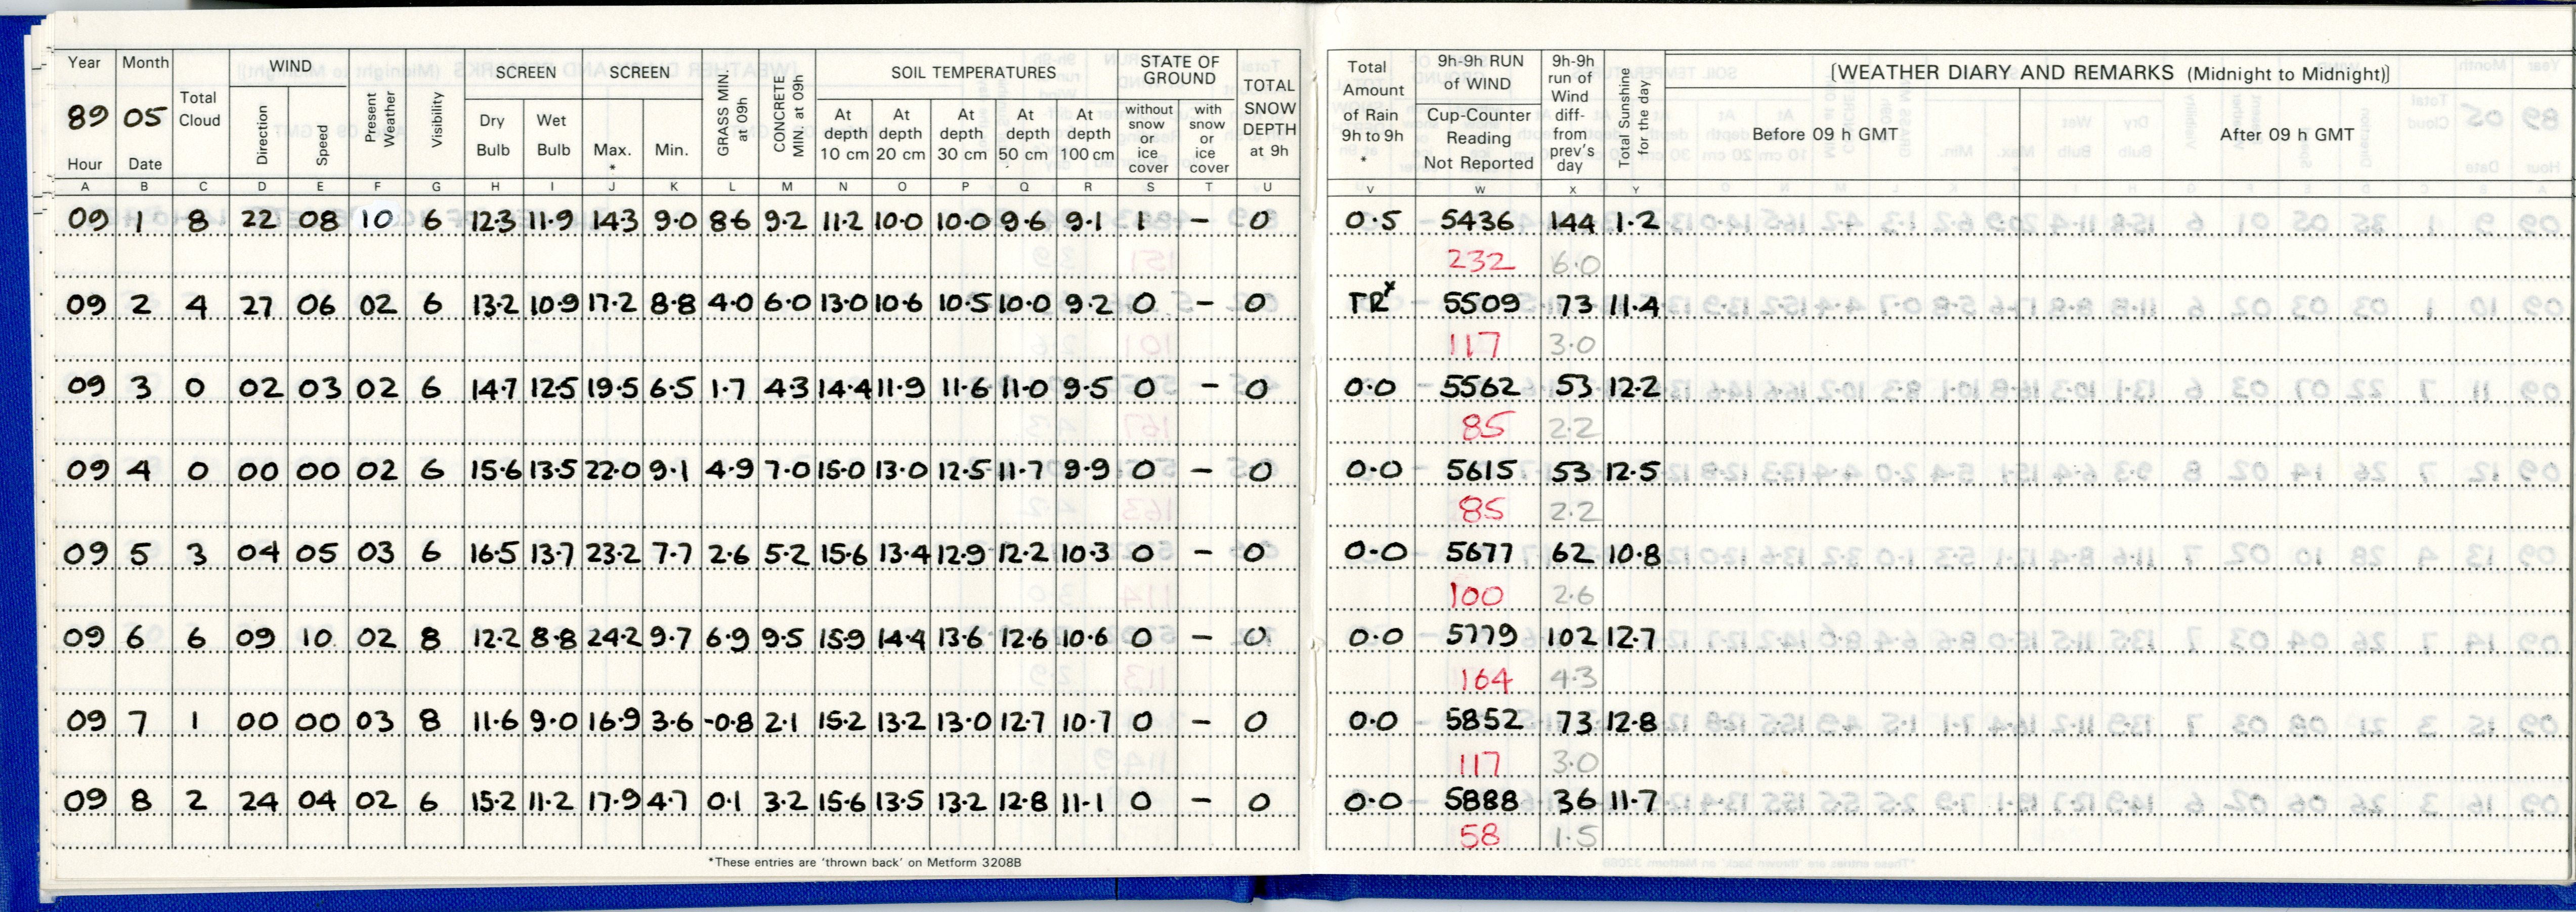 Year Month Total Cloud WIND Present Weather Visibility SCREEN SCREEN GRASS MIN. at 09h CONCRETE MIN. at 09h SOIL TEMPERATURES STATE OF GROUND TOTAL SNOW DEPTH at 9h Total Amount of Rain 9h to 9h * 9h-9h RUN of WIND 9h-9h run of Wind diff- from prev's day Total Sunshine for the day [WEATHER DIARY AND REMARKS (Midnight to Midnight)]
89 05 Direction Speed Dry Bulb Wet Bulb Max. * Min. At depth 10 cm At depth 20 cm At depth 30 cm At depth 50 cm At depth 100 cm without snow or ice cover with snow or ice cover Cup-Counter Reading Not Reported Before 09 h GMT After 09 h GMT
Hour Date
A B C D E F G H I J K L M N O P Q R S T U V W X Y
09 1 8 22 08 10 6 12.3 11.9 14.3 9.0 8.6 9.2 11.2 10.0 10.0 9.6 9.1 1 – 0 0.5 5436 144 1.2
232 6.0
09 2 4 27 06 02 6 13.2 10.9 17.2 8.8 4.0 6.0 13.0 10.6 10.5 10.0 9.2 0 – 0 TRx 5509 73 11.4
117 3.0
09 3 0 02 03 02 6 14.7 12.5 19.5 6.5 1.7 4.3 14.4 11.9 11.6 11.0 9.5 0 – 0 0.0 5562 53 12.2
85 2.2
09 4 0 00 00 02 6 15.6 13.5 22.0 9.1 4.9 7.0 15.0 13.0 12.5 11.7 9.9 0 – 0 0.0 5615 53 12.5
85 2.2
09 5 3 04 05 03 6 16.5 13.7 23.2 7.7 2.6 5.2 15.6 13.4 12.9 12.2 10.3 0 – 0 0.0 5677 62 10.8
100 2.6
09 6 6 09 10 02 8 12.2 8.8 24.2 9.7 6.9 9.5 15.9 14.4 13.6 12.6 10.6 0 – 0 0.0 5779 102 12.7
164 4.3
09 7 1 00 00 03 8 11.6 9.0 16.9 3.6 -0.8 2.1 15.2 13.2 13.0 12.7 10.7 0 – 0 0.0 5852 73 12.8
117 3.0
09 8 2 24 04 02 6 15.2 11.2 17.9 4.7 0.1 3.2 15.6 13.5 13.2 12.8 11.1 0 – 0 0.0 5888 36 11.7
58 1.5
*These entries are 'thrown back' on Metform 3208B